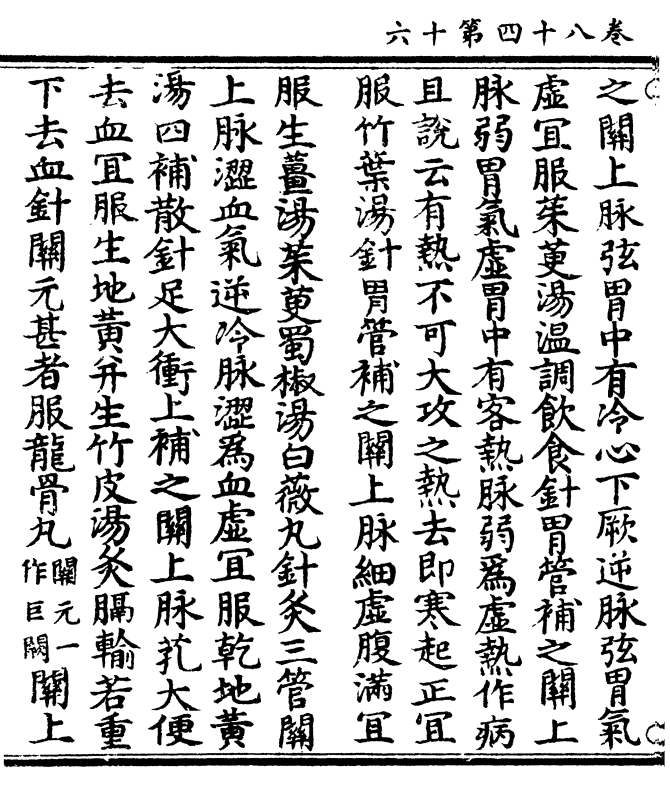 卷八十四第十六
之關上脉弦胃中有冷心下厥逆脉弦胃氣
虛冝服茱萸湯温調飲食針胃管補之關上
脉弱胃氣虛胃中有客熱脉弱爲虛熱作病
且説云有熱不可大攻之熱去即寒起正冝
服竹葉湯針胃管補之關上脉細虛腹滿冝
服生薑湯茱萸蜀椒湯白薇丸針灸三管關
上脉澀血氣逆冷脉澀爲血虛冝服乾地黃
湯四補散針足大衝上補之關上脉芤大便
去血冝服生地黃并生竹皮湯灸膈輸若重
下去血針關元甚者服龍骨丸關元一作巨闕關上